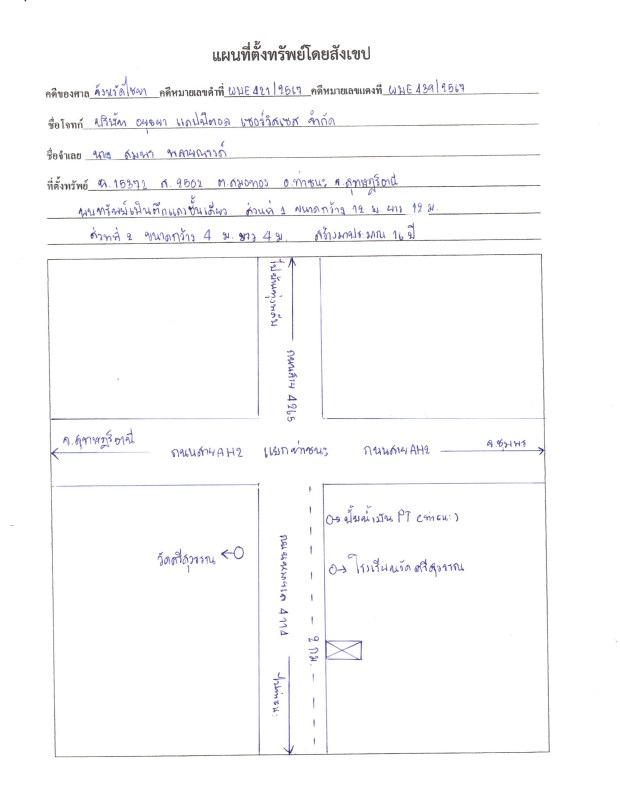 แผนที่ตั้งทรัพย์โดยสังเขป
คดีของศาล จังหวัดไชยา คดีหมายเลขดำที่ ผบE421/2567 คดีหมายเลขแดงที่ ผบE439/2567
ชื่อโจทก์ บริษัท อยุธยา แคปปิตอล เซอร์วิสเซส จำกัด
ชื่อจำเลย นาง สมพา
ที่ตั้งทรัพย์ ฉ.15372 ต. สมอทอง อ.ท่าชนะ จ.สุราษฎร์ธานี
ทรัพย์เป็นตึกแถวชั้นเดียว ส่วนที่ 1 ขนาดกว้าง 12 ม. ยาว 12 ม.
ส่วนที่ 2 ขนาดกว้าง 4 ม. ยาว 4 ม. สร้างมาประมาณ 16 ปี
ถนนสาย 4265
จ.สุราษฎร์ธานี
ถนนสายAH2 แยกท่าชนะ ถนนสายAH2
จ.ชุมพร
ปั๊มน้ำมัน PT (ท่าชนะ)
วัดศรีสุวรรณ
โรงเรียนวัดศรีสุวรรณ
ถนนหมายเลข
2 กม.
ไปท่าชนะ